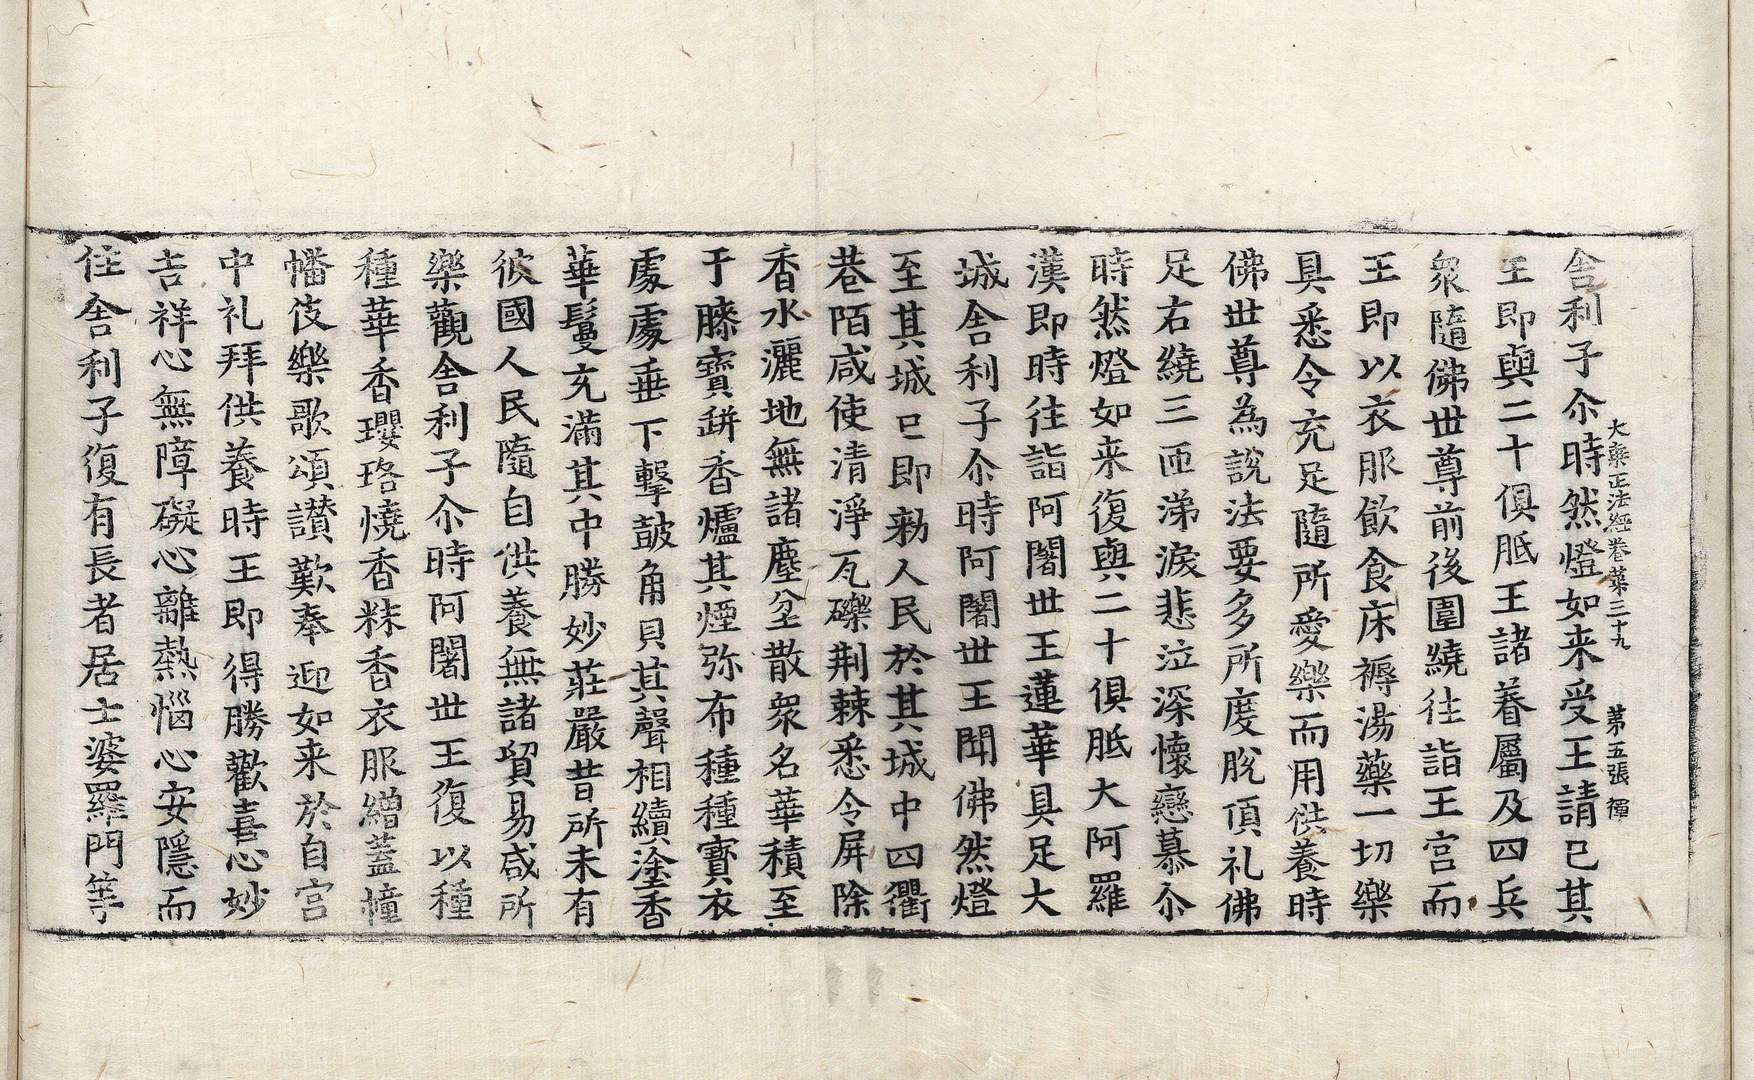 大藥正法經卷苐三十九 苐五張 禪
舍利子尒時然燈如来受王請已其
王即與二十俱胝王諸眷屬及四兵
衆隨佛世尊前後圍繞往詣王宫而
王即以衣服飲食床褥湯藥一切樂
具悉令充足隨所愛樂而用供養時
佛世尊為說法要多所度脫頂礼佛
足右繞三匝涕淚悲泣深懷戀慕尒
時然燈如来復與二十俱胝大阿羅
漢即時往詣阿闍世王蓮華具足大
城舍利子尒時阿闍世王聞佛然燈
至其城已即勑人民於其城中四衢
巷陌咸使清淨瓦礫荆棘悉令屏除
香水灑地無諸塵坌散衆名華積至
于膝寶缾香爐其煙弥布種種寶衣
處處垂下擊鼓角貝其聲相續塗香
華鬘充滿其中勝妙莊嚴昔所未有
彼國人民隨自供養無諸貿易咸所
樂觀舍利子尒時阿闍世王復以種
種華香瓔珞燒香粖香衣服繒蓋幢
幡伎樂歌頌讃歎奉迎如来於自宫
中礼拜供養時王即得勝歡喜心妙
吉祥心無障礙心離熱惱心安隱而
住舍利子復有長者居士婆羅門等